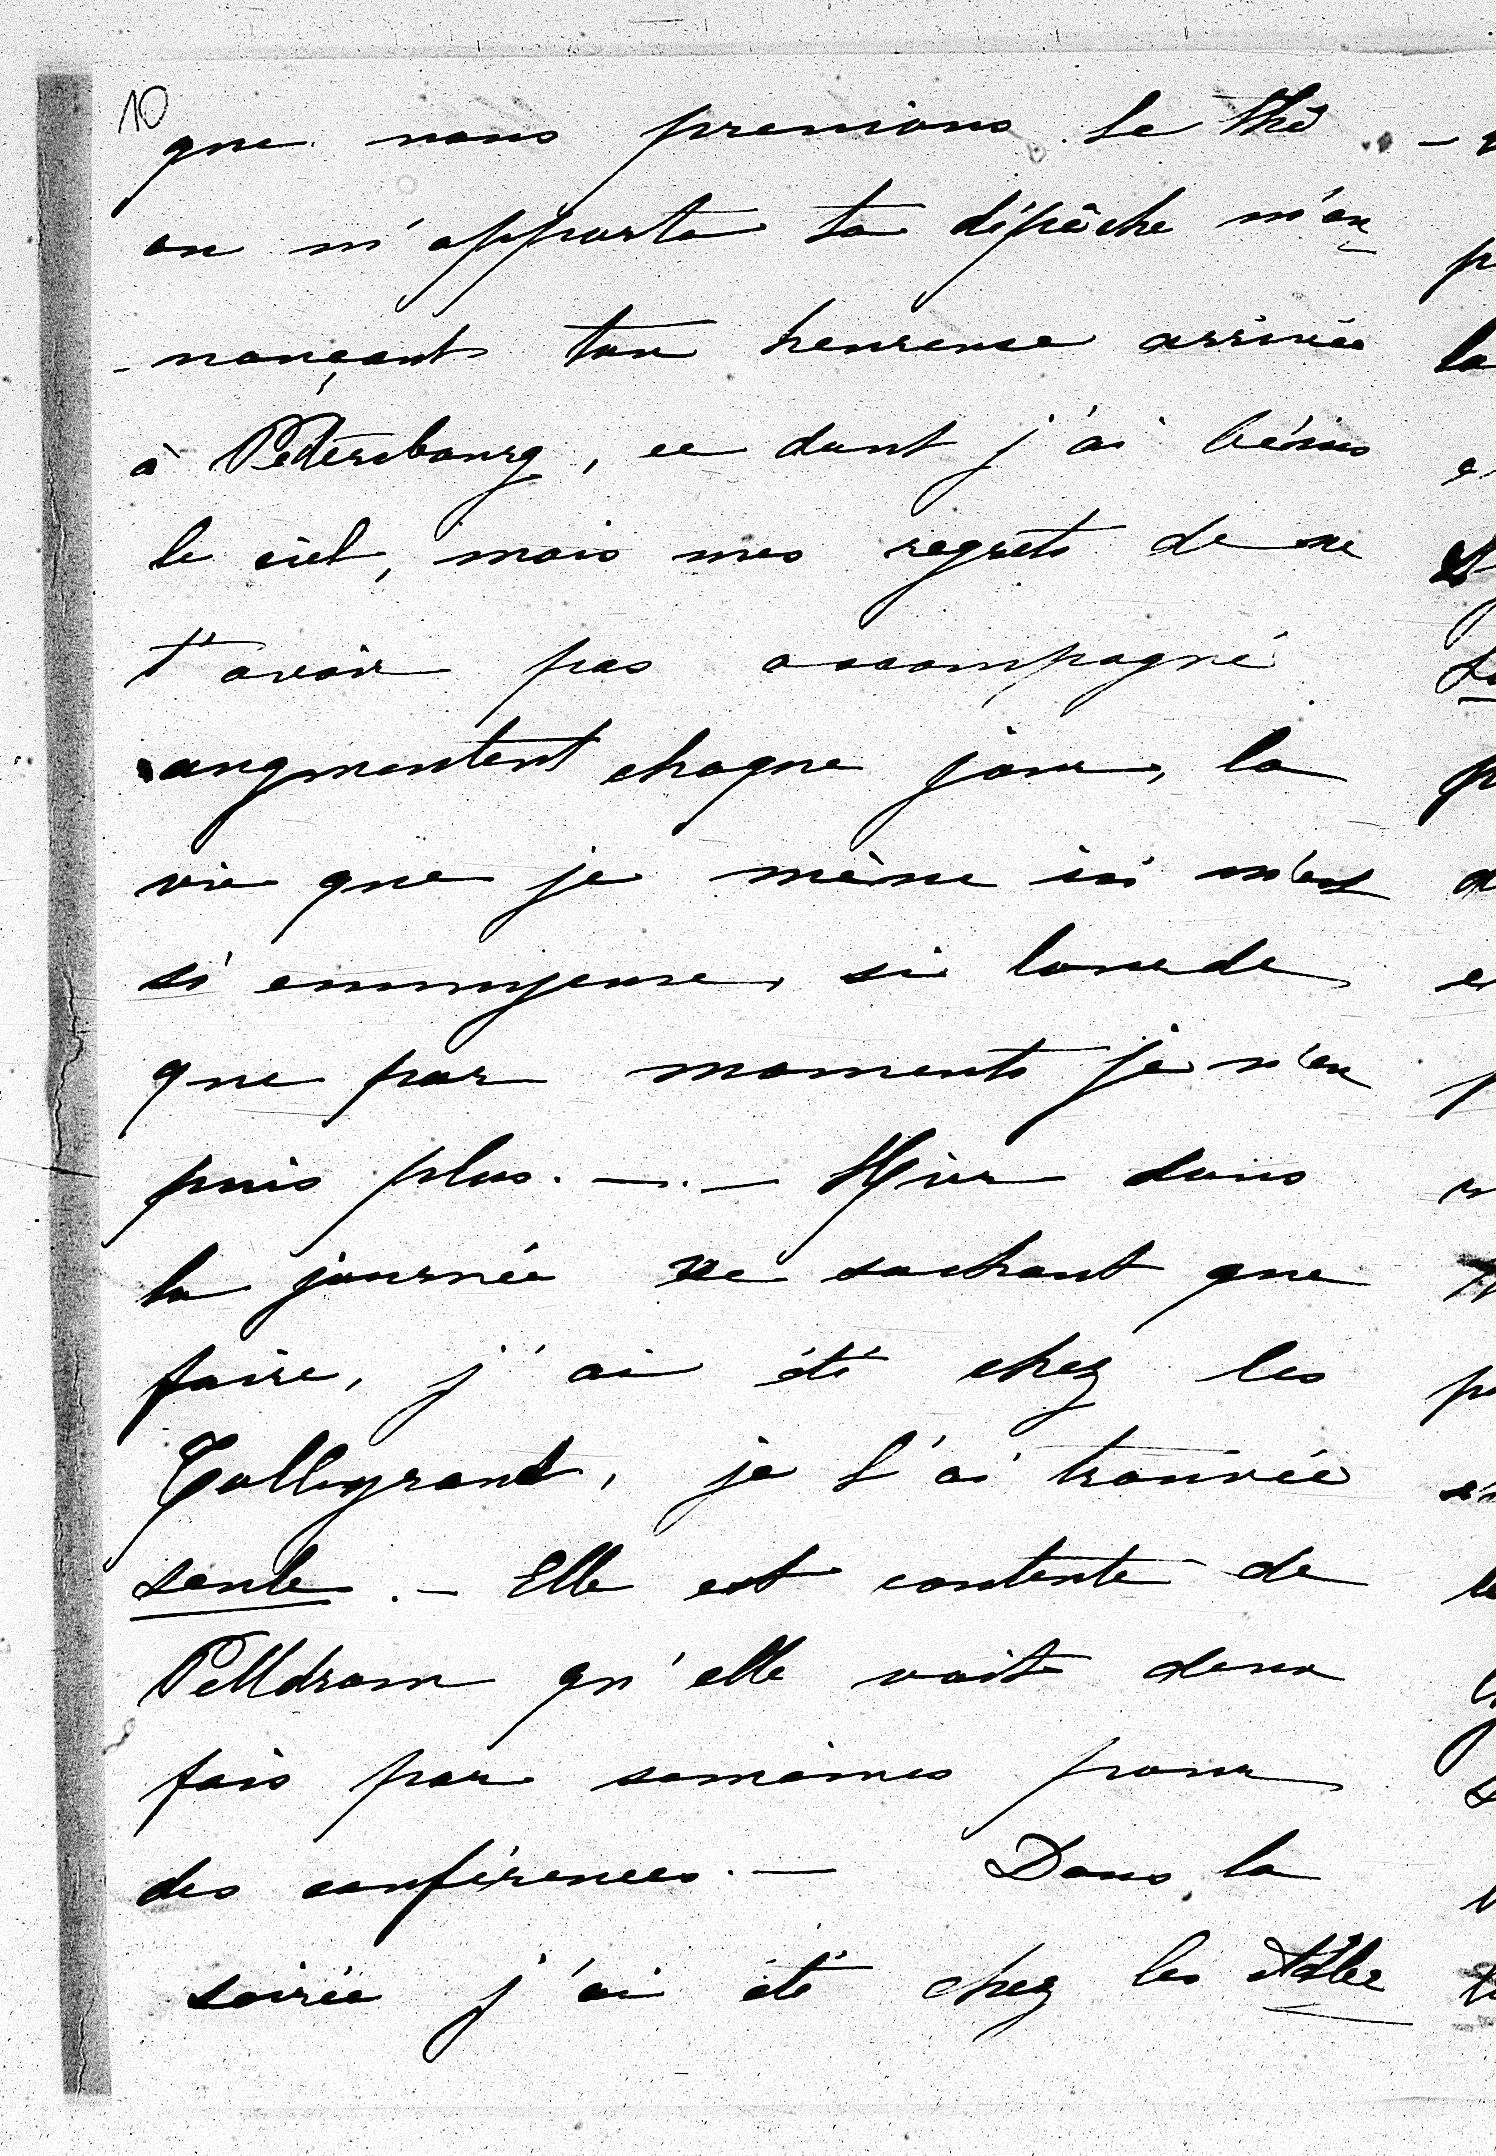 10
que nous prenions le thé
on m'apporta ta dépêche m'an
-nonçant ton heureuse arrivée
à Pétersbourg, ce dont j'ai bénis
le ciel, mais mes regrets de ne
t'avoir pas accompagné
augmentent chaque jour, la
vie que je mène ici m'est
si ennuyeuse, si lourde
que par moments je n'en
puis plus. — . — Hier dans
la journée ne sachant que
faire, j'ai été chez les
je l'ai trouvée
seule. — Elle est contente de
Pelldram qu'elle voit deux
fois par semaines pour
des conférences. — Dans la
soirée j'ai été chez les